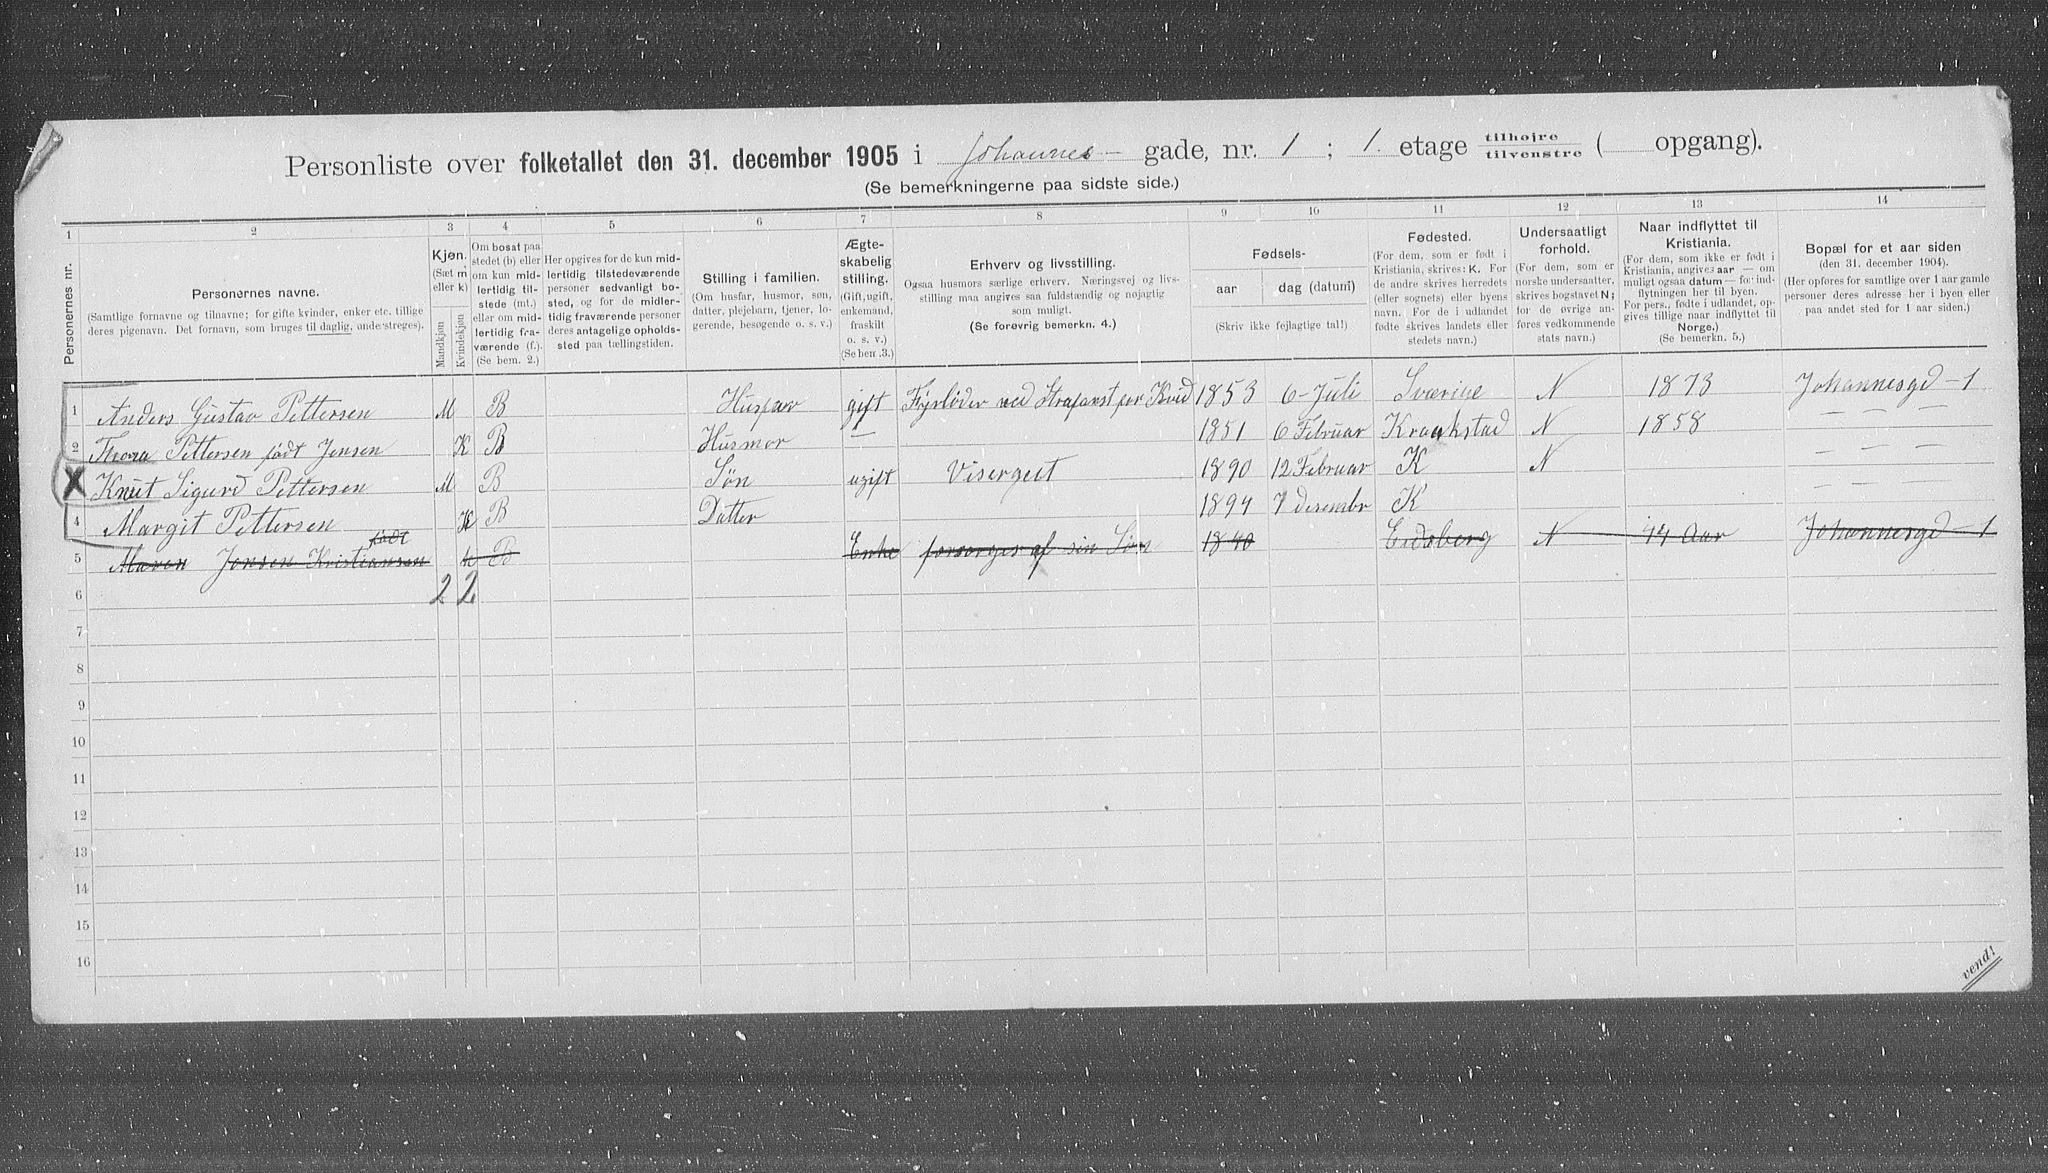 Personliste over folketallet den 31. december 1905 i Johannes- gade, nr. 1 ; 1. etage tilhøjre/tilvenstre ( opgang).
(Se bemerkningerne paa sidste side.)
1 2 3 4 5 6 7 8 9 10 11 12 13 14
Personernes nr.
Personernes navne.
(Samtlige fornavne og tilnavne; for gifte kvinder, enker etc. tillige
deres pigenavn. Det fornavn, som bruges til daglig, understreges).
Kjøn.
(Sæt m
eller k)
Mandkjøn
Kvindekjøn
Om bosat paa
stedet (b) eller
om kun mid-
lertidig til-
stede (mt.)
eller om mid-
lertidig fra-
værende (f.).
(Se bem. 2.)
Her opgives for de kun mid-
lertidig tilstedeværende
personer sedvanligt bo-
sted, og for de midler-
tidig fraværende personer
deres antagelige opholds-
sted paa tællingstiden.
Stilling i familien.
(Om husfar, husmor, søn,
datter, plejebarn, tjener, lo-
gerende, besøgende o. s. v.)
Ægte-
skabelig
stilling.
(Gift, ugift,
enkemand,
fraskilt
o. s. v.)
(Se bem .3.)
Erhverv og livsstilling.
Ogsaa husmors særlige erhverv. Næringsvej og livs-
stilling maa angives saa fuldstændig og nøjagtig
som muligt.
(Se forøvrig bemerkn. 4.)
Fødsels-
aar
dag (datum)
(Skriv ikke fejlagtige tal!)
Fødested.
(For dem, som er født i
Kristiania, skrives: K. For
de andre skrives herredets
(eller sognets) eller byens
navn. For de i udlandet
fødte skrives landets eller
stedets navn.)
Undersaatligt
forhold.
(For dem, som er
norske undersaatter,
skrives bogstavet N;
for de øvrige an-
føres vedkommende
stats navn.)
Naar indflyttet til
Kristiania.
(For dem, som ikke er født i
Kristiania, angives aar — om
muligt ogsaa datum — for ind-
flytningen her til byen.
For pers., fødte i udlandet, op-
gives tillige naar indflyttet til
Norge.)
(Se bemerkn. 5.)
Bopæl for et aar siden
(den 31. december 1904).
(Her opføres for samtlige over 1 aar gamle
personer deres adresse her i byen eller
paa andet sted for 1 aar siden.)
1 Anders Gustav Pettersen M B Husfar gift Fyrbøder ved Strafanst for Kvid 1853 6 Juli Sverige N 1873 Johannesgd - 1
2 Thora Pettersen født Jensen K B Husmor — 1851 6 Februar Kraakstad N 1858 — — —
X Knut Sigurd Pettersen M B Søn ugift Visergut 1890 12 Februar K N — — —
4 Margit Pettersen K B Datter 1894 7 Desembr K — — — —
5 Maren Jensen født Kristiansen K B Enke forsørges af sin Søn 1840 Eidsberg N 44 Aar Johannesgd - 1
6 2 2
7
8
9
10
11
12
13
14
15
16
vend!